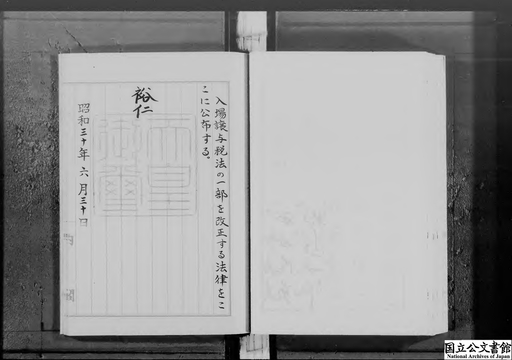 入場譲与税法の一部を改正する法律をこ
こに公布する。
裕仁
天皇
御璽
昭和三十年六月三十日
国立公文書館
National Archives of Japan